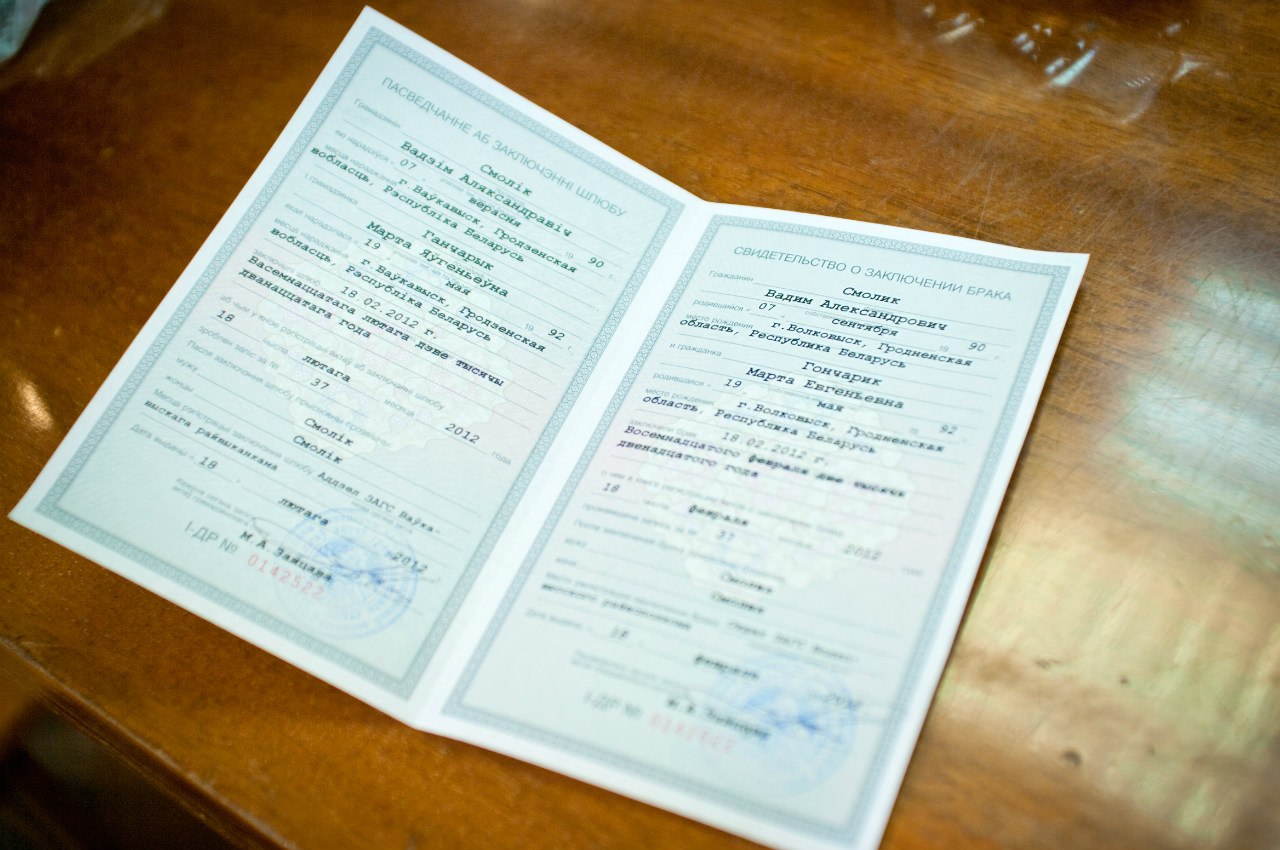 ПАСВЕДЧАННЕ АБ ЗАКЛЮЧЭННІ ШЛЮБУ
Грамадзянін
Смолік
Вадзім Аляксандравіч
які нарадзіўся « 07 » верасня 19 90 г.
месца нараджэння г.Ваўкавыск, Гродзенская
вобласць, Рэспубліка Беларусь
і грамадзянка
Ганчарык
Марта Яўгеньеўна
якая нарадзілася « 19 » мая 19 92 г.
месца нараджэння г.Ваўкавыск, Гродзенская
вобласць, Рэспубліка Беларусь
заключылі шлюб 18.02.2012 г.
Васемнаццатага лютага дзве тысячы
дванаццатага года
аб чым у кнізе рэгістрацыі актаў аб заключэнні шлюбу
18 числа лютага месяца 2012 года
зроблен запіс за № 37
Пасля заключэння шлюбу прысвоены прозвішчы:
мужу Смолік
жонцы Смолік
Месца рэгістрацыі заключэння шлюбу Аддзел ЗАГС Ваўка-
выскага райвыканкама
Дата выдачы « 18 » лютага 2012
М.А.Зайцава
І-ДР № 0142522
СВИДЕТЕЛЬСТВО О ЗАКЛЮЧЕНИИ БРАКА
Гражданин
Смолик
Вадим Александрович
родившийся « 07 » сентября 19 90 г.
место рождения г.Волковыск, Гродненская
область, Республика Беларусь
и гражданка
Гончарик
Марта Евгеньевна
родившаяся « 19 » мая 19 92 г.
место рождения г.Волковыск, Гродненская
область, Республика Беларусь
заключили брак 18.02.2012 г.
Восемнадцатого февраля две тысячи
двенадцатого года
о чем в книге регистрации актов о заключении брака
18 числа февраля месяца 2012 года
произведена запись за № 37
После заключения брака присвоены фамилии:
мужу Смолик
жене Смолик
Место регистрации заключения брака Отдел ЗАГС Волко-
высского райисполкома
Дата выдачи « 18 » февраля 2012
І-ДР № 0142522